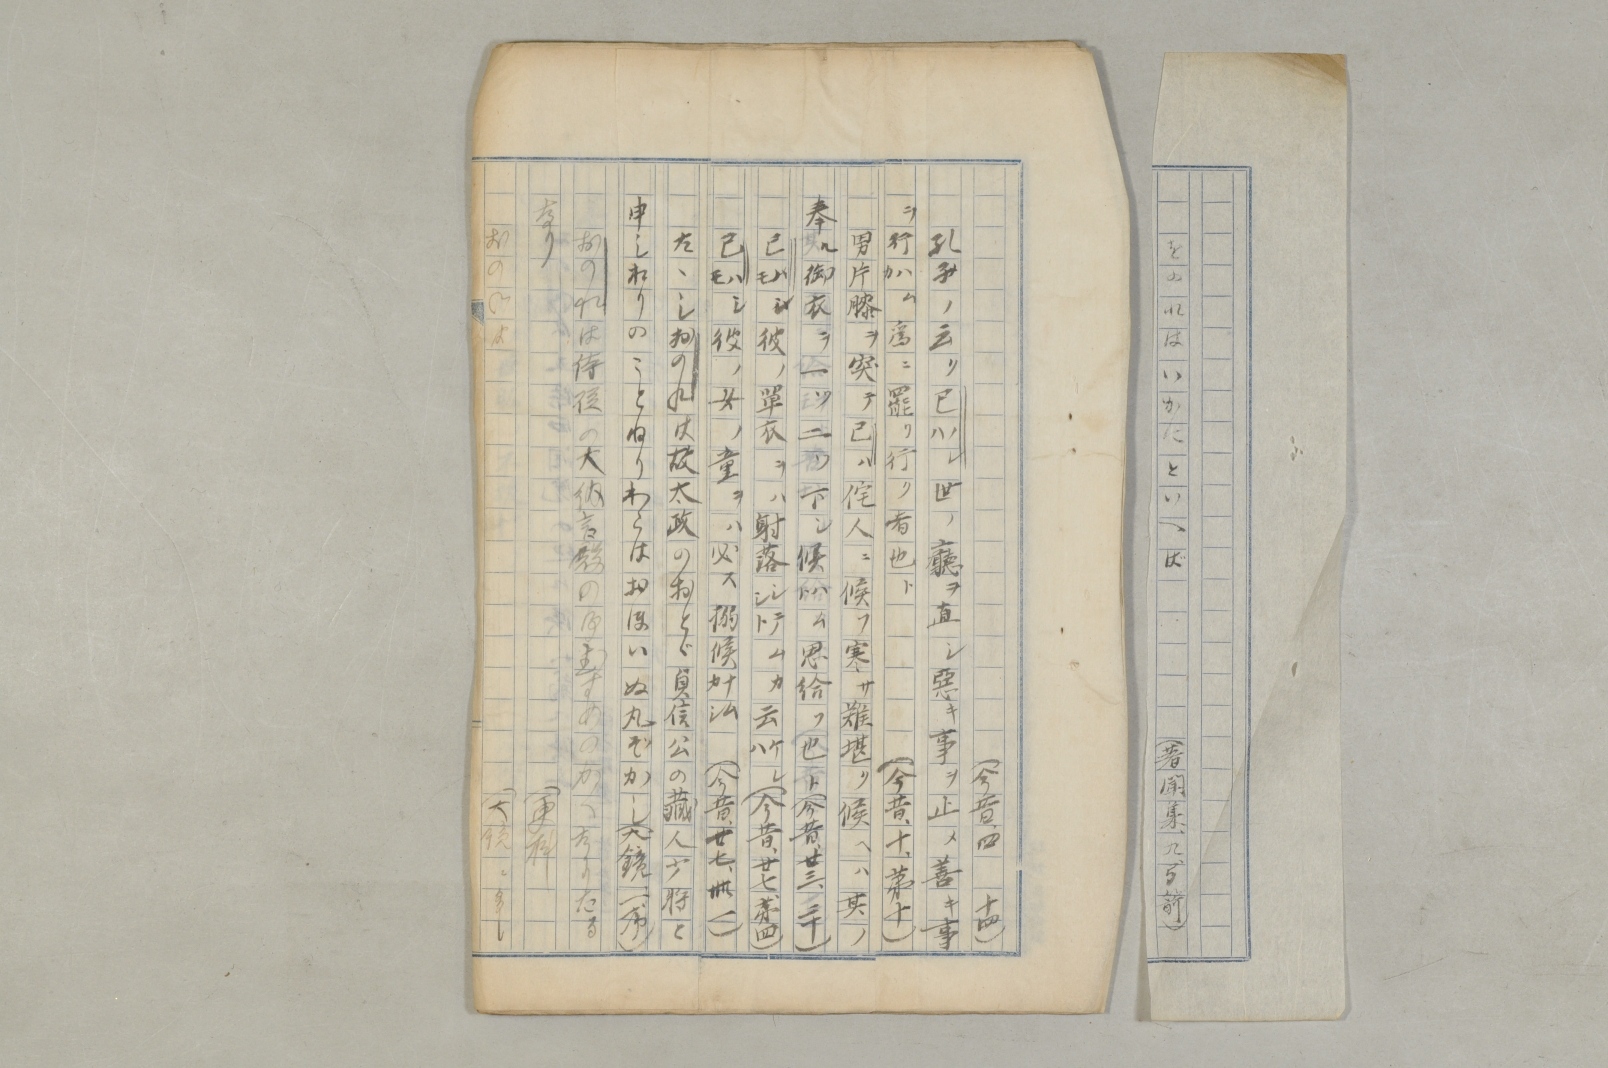 をのれはいかにといへば　（著聞集、
（今昔、四　十四）
孔子ノ云ク己ハノレ世ノ廳ヲ直シ惡キ事ヲ止メ善キ事
ヲ行ハムカ為ニ罷リ行ク者也ト　（今昔、十、第十）
男片膝ヲ突テ己ハ侘人ニ候フ寒サ難堪ク候ヘハ其ノ
奉ル御衣ヲ一ツ二ツ下シ候ハムト思給フ也ト（今昔、廿三、二十）
己ハシモ彼ノ單衣ヲハ射落シテムトシカ云ケレハ（今昔、廿七、第四）
己ハシモ彼ノ女ノ童ヲハ必ス搦候ナムカシ（今昔、廿七、卌一）
たゝしおのれは故太政のおとゞ貞信公の藏人少將と
申しおりのことねりわらはおほいぬ丸ぞかし（大鏡、一序）
おのれは侍從の大納言殿の御むすめのかくなりたる
なり　（更科）
（大鏡、